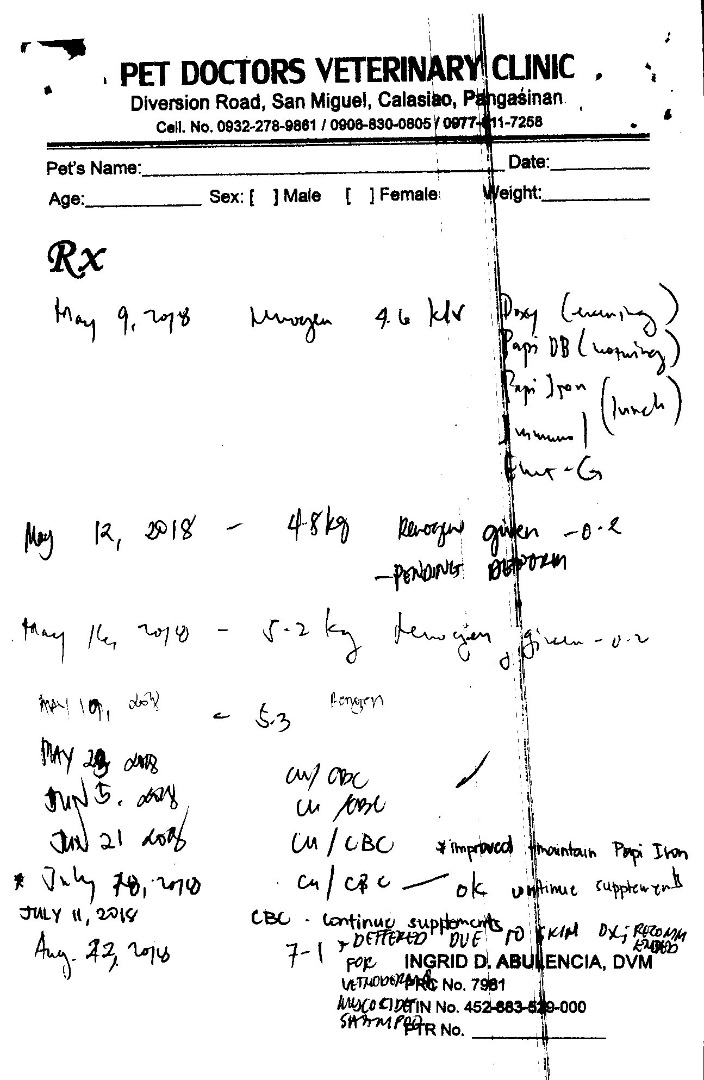 PET DOCTORS VETERINARY CLINIC
Diversion Road, San Miguel, Calasiao, Pangasinan
Cell. No. 0932-278-9861 / 0906-830-0805 / 0977-11-7258
Pet's Name: Date:
Age: Sex: [ ] Male [ ] Female Weight:
Rx
May 9, 2018 Renogen 4.6 Doxy (evening)
Papi DB (morning)
Papi Iron (lunch)
Immunol
Ener-G
May 12, 2018 - 4.8kg Renogen given - 0.2
- PENDING DEWORM
May 16, 2018 - 5.2 kg Renogen given - 0.2
MAY 19, 2018 - 5.3 Renogen
MAY 2018
JUN 5. 2018 CU / CBC
CU / CBC
JUN 21 2018 CU / CBC *improved maintain Papi Iron
* July 2018 CU / CBC — OK continue supplements
JULY 11, 2018 CBC - continue supplements
Aug. 2018 7-1 * DEFFERED DUE TO SKIN DX; RECOMMENDED
FOR
INGRID D. ABULENCIA, DVM
PRC No. 7981
MYCOCIDE
TIN No. 452-883-529-000
SHAMPOO
PTR No.